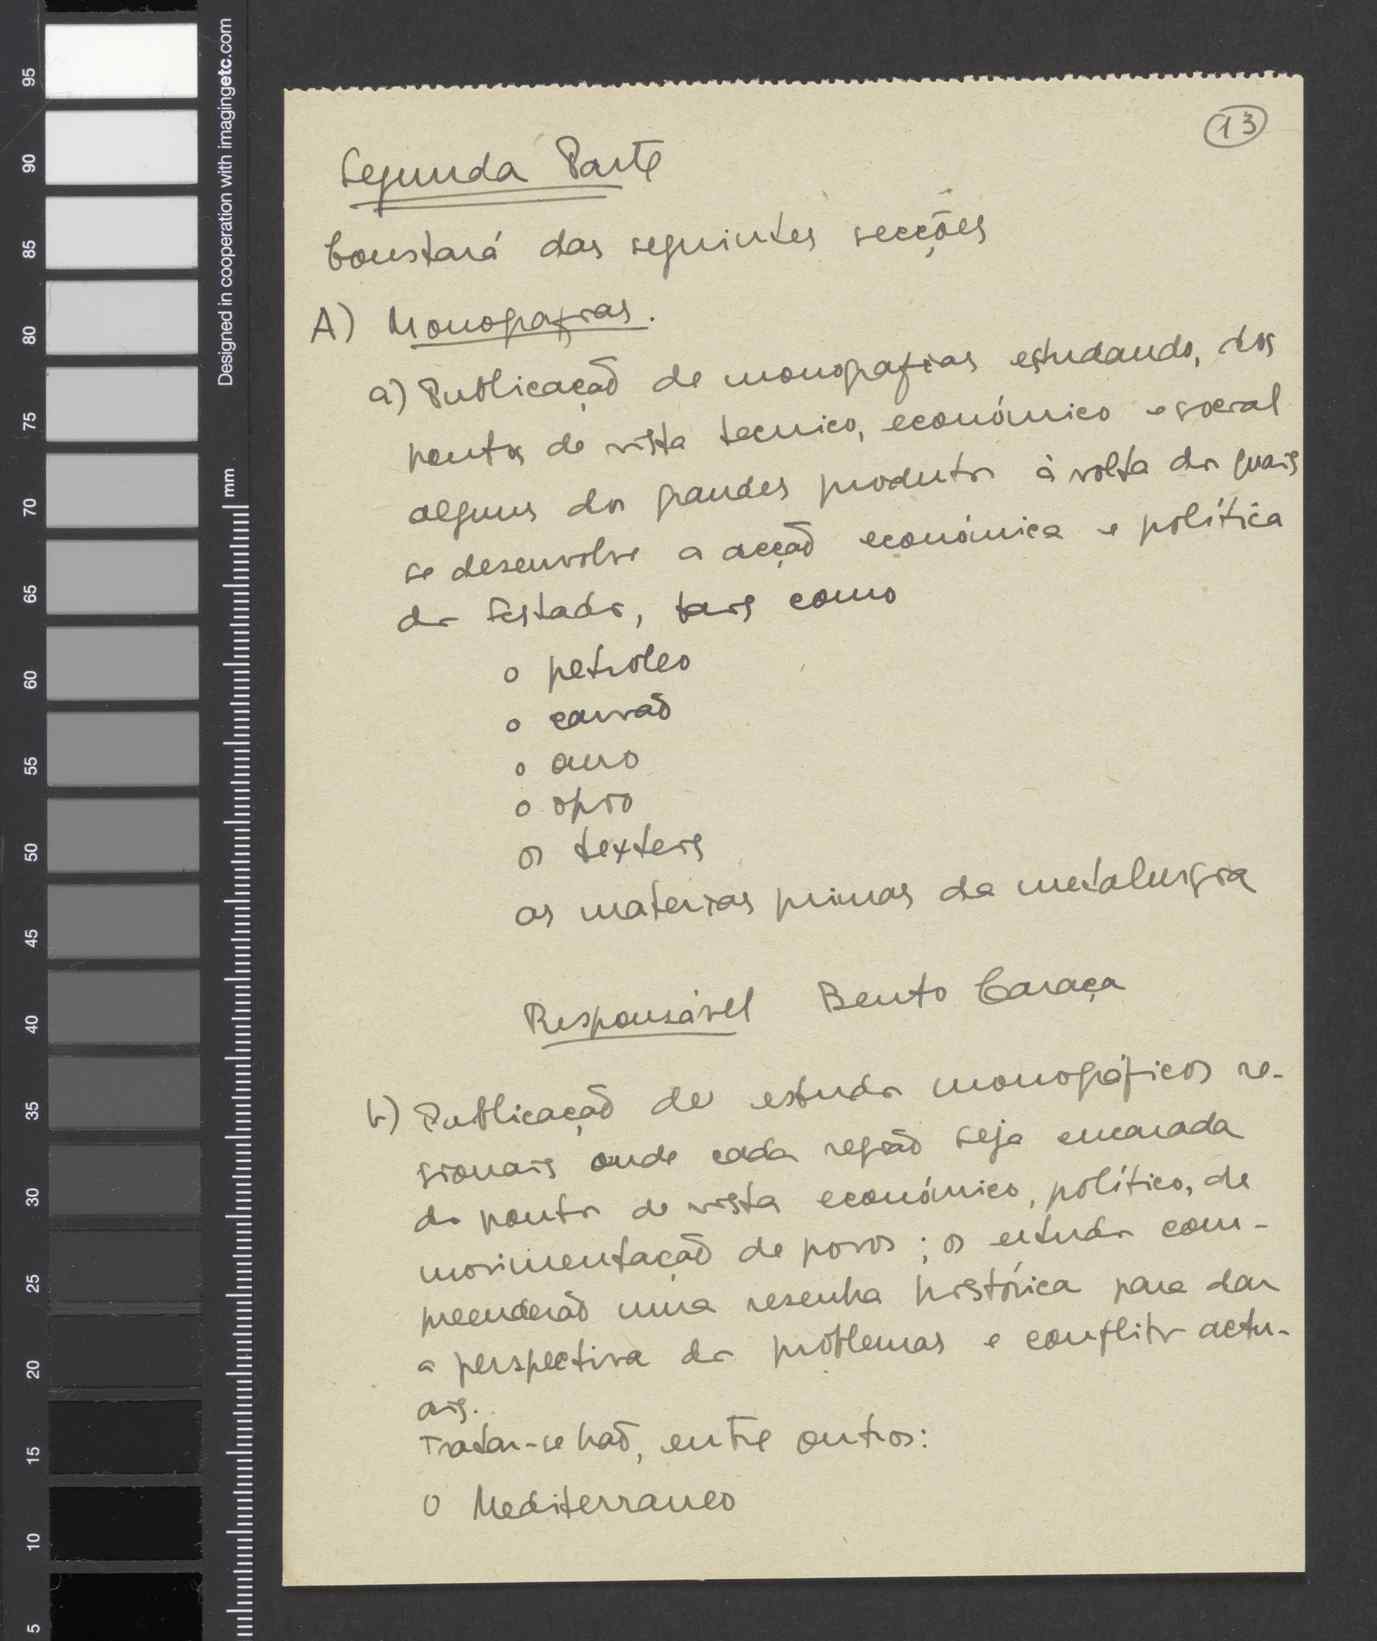 13
Segunda Parte
Constará das seguintes secções
A) Monografias.
a) Publicação de monografias estudando, dos
pontos de vista tecnico, económico e social
alguns dos grandes produtos à volta dos quais
se desenvolve a acção económica e política
dos Estados, tais como
o petroleo
o carvão
o ouro
o opio
os texteis
as materias primas da metalurgia
Responsável Bento Caraça
b) Publicação de estudos monográficos re-
gionais onde cada região seja encarada
do ponto de vista económico, político, de
movimentação de povos; os estudos com-
preenderão uma resenha histórica para dar
a perspectiva dos problemas e conflitos actu-
ais.
Tratar-se hão, entre outros:
O Mediterraneo
Designed in cooperation with imagingetc.com
mm
95
90
85
80
75
70
65
60
55
50
45
40
35
30
25
20
15
10
5